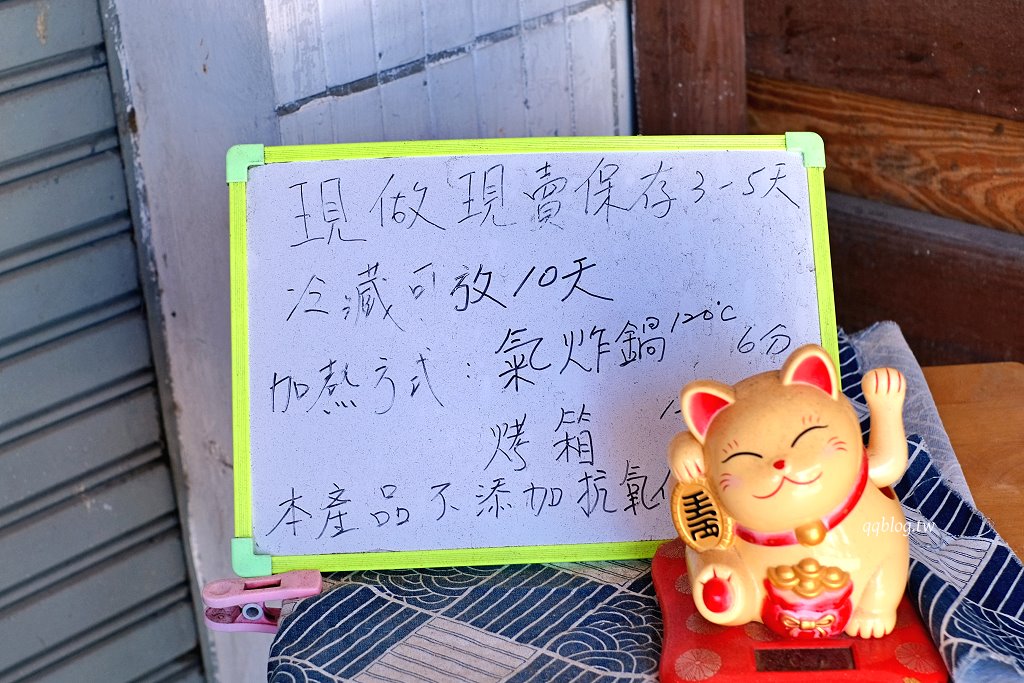 現做現賣保存3-5天
冷藏可放10天
加熱方式：氣炸鍋120°C 6分
烤箱
本產品不添加抗氧
qqblog.tw